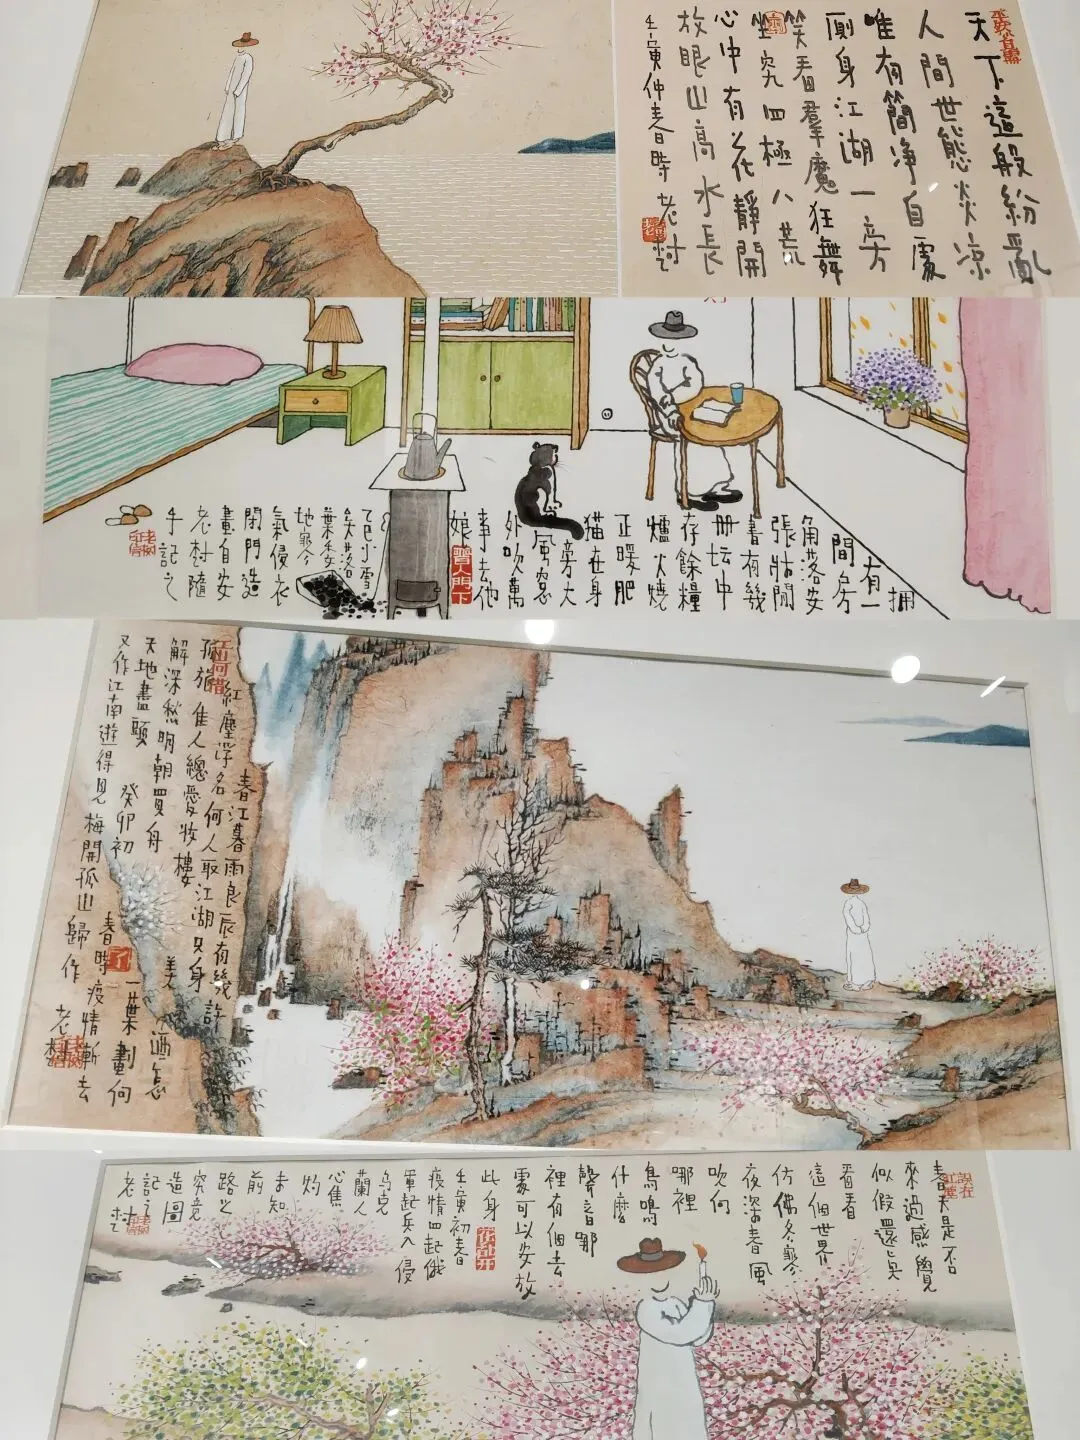 天下這般紛亂
人間世態炎凉
唯有簡净自處
厠身江湖一旁
笑看羣魔狂舞
坐究四極八荒
心中有花靜開
放眼山高水長
壬寅仲春時 老村
拥
有一
間房
角落安
張牀閒
書有幾
册坛中
存餘糧
爐火燒
正暖肥
猫在身
旁大
風窓
外吹萬
事去他
娘
乙巳小雪
矣落
葉
地寒冷
氣侵衣
閉門造
畫自安
老村隨
手記之
春江暮雨良辰有幾許
紅塵浮名何人取江湖只身
孤旅隹人總愛妝樓
解深愁明朝買舟
天地盡頭 癸卯初
又作江南遊得見梅開孤山歸作 老村
美酒怎
春時疫情漸去
一葉劃向
春天是否
來過感覺
似假還真
看看
這個世界
仿佛冬寒
夜深春風
吹向
哪裡
鳥鳴
什麼
聲音哪
裡有個去
處可以安放
此身
壬寅初春
疫情四起俄
軍起兵入侵
乌克
蘭人
心焦
灼
未知
前
路之
究竟
造圖
記之
老村